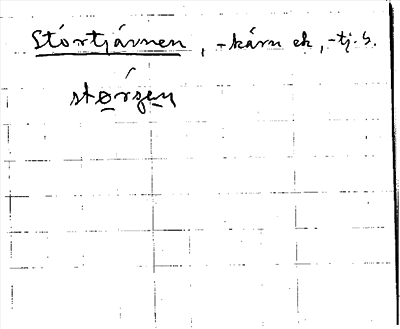 Stórtjárnen, -kärn ek, -tj. b.
stǫ́rʒen